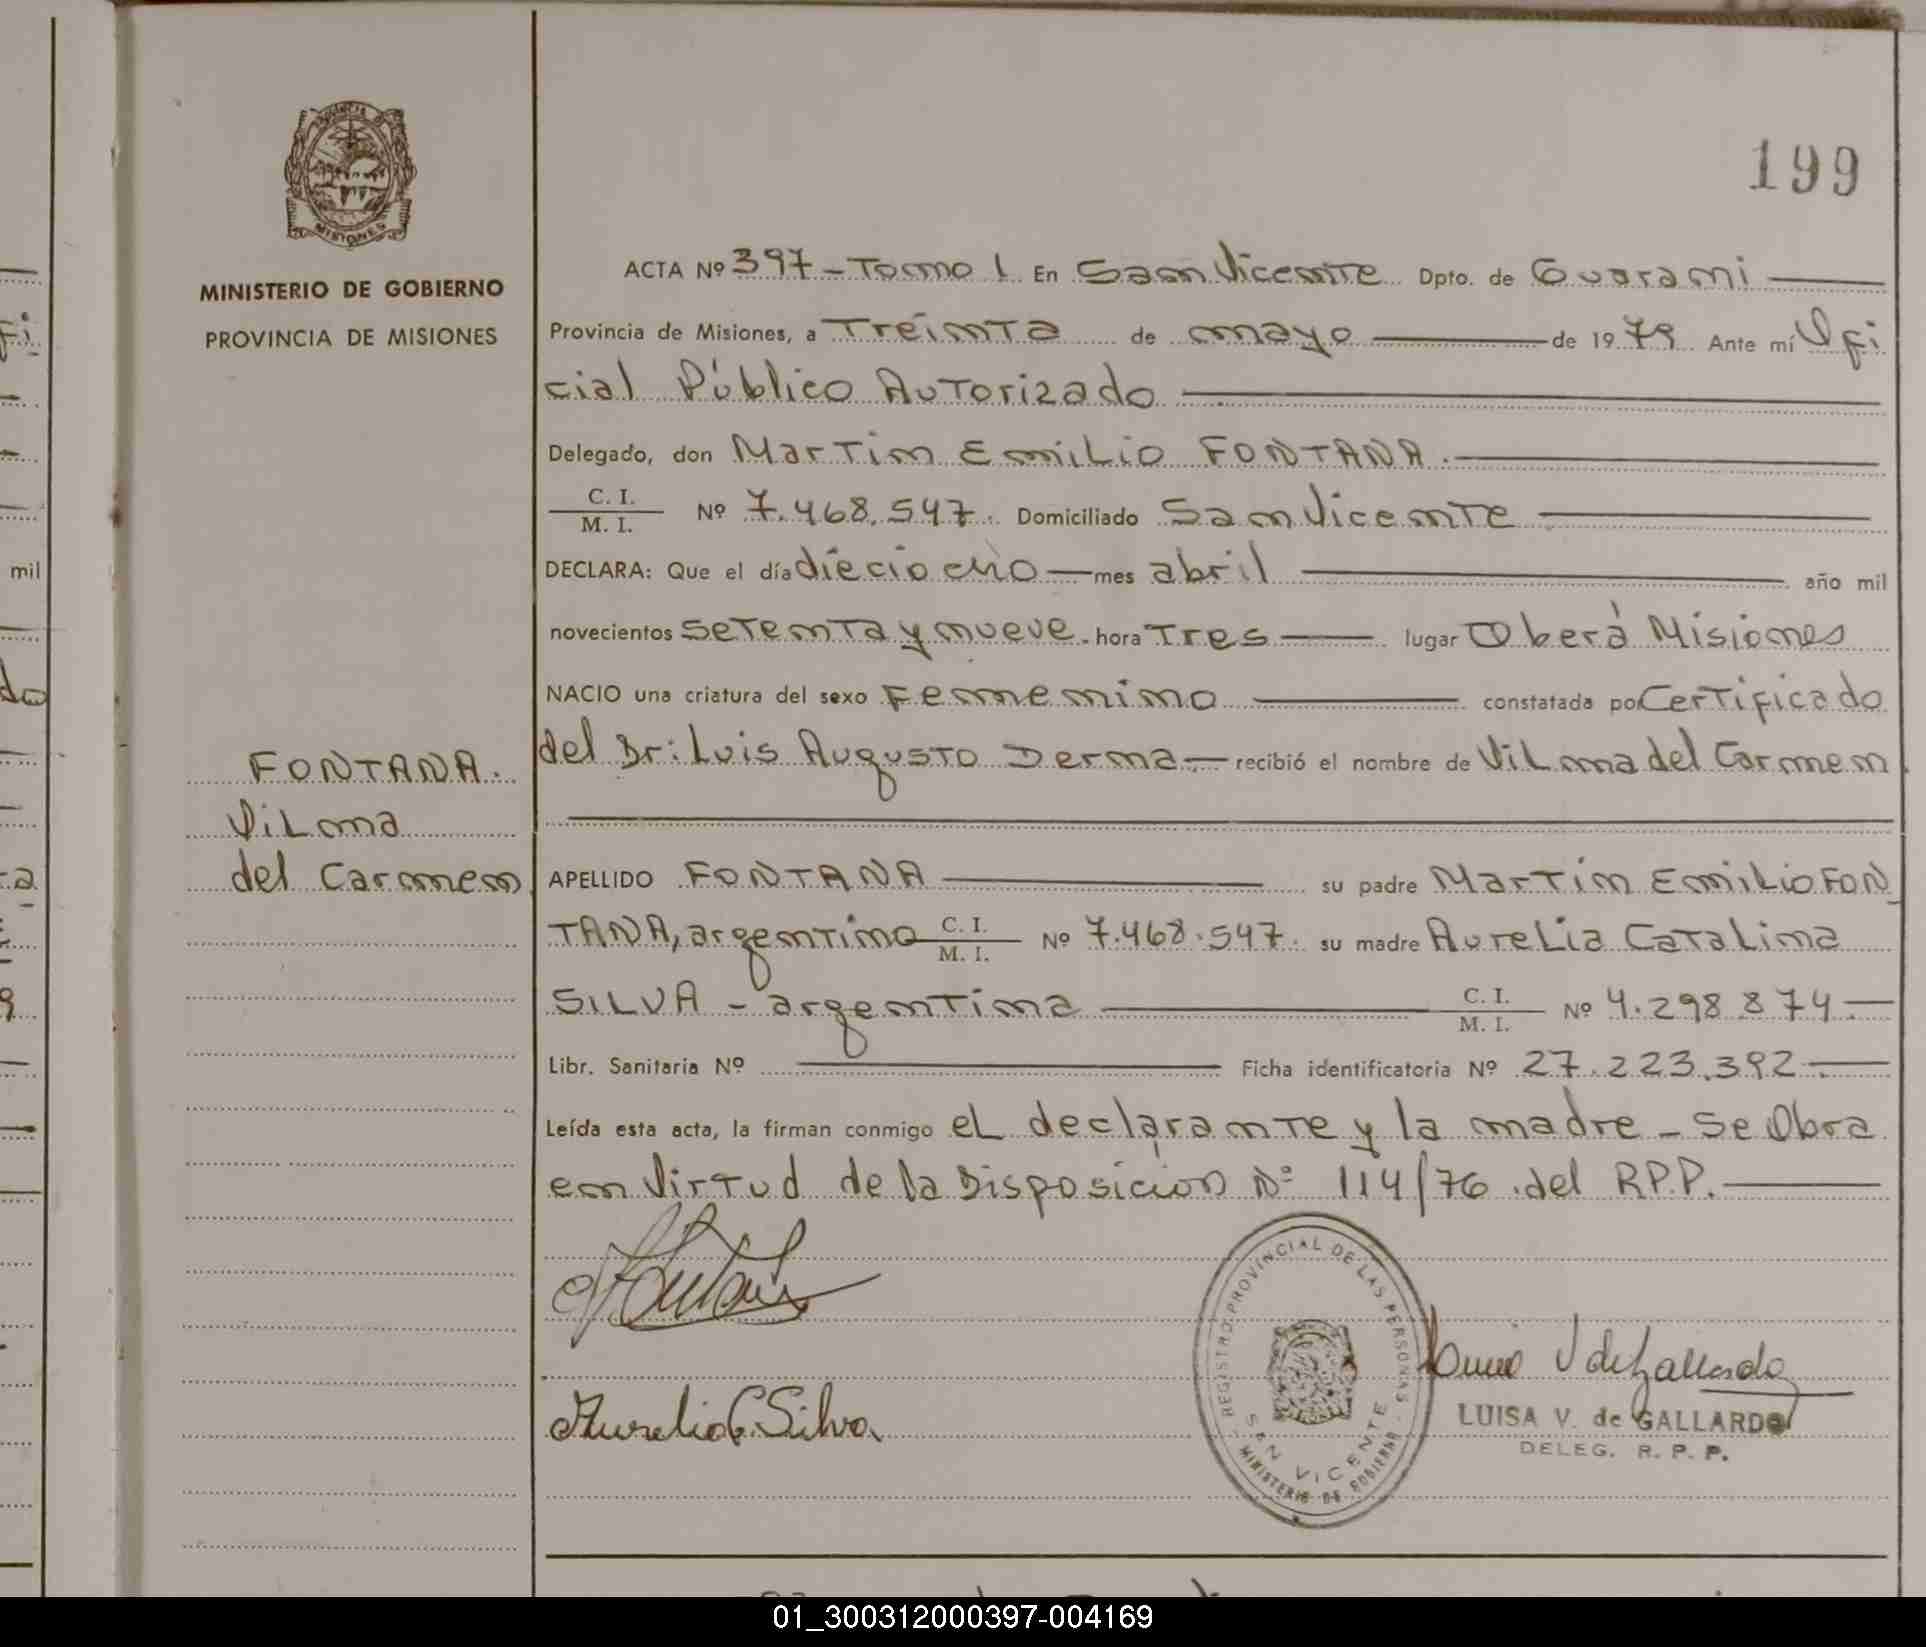 199
MINISTERIO DE GOBIERNO
PROVINCIA DE MISIONES
ACTA Nº 397 - Tomo I. En San Vicente Dpto. de Guarani
Provincia de Misiones, a Treinta de mayo de 1979 Ante mí Ofi
cial Público Autorizado
Delegado, don Martin Emilio FONTANA.
C. I.
M. I. Nº 7.468.547. Domiciliado San Vicente
DECLARA: Que el día dieciocho mes abril año mil
novecientos setenta y nueve. hora Tres lugar Oberá Misiones
NACIO una criatura del sexo Femenino constatada por Certificado
del Dr: Luis Augusto Derna recibió el nombre de Vilma del Carmen
FONTANA.
Vilma
del Carmen
APELLIDO FONTANA su padre Martin Emilio FON
TANA, argentino C. I. / M. I. Nº 7.468.547. su madre Aurelia Catalina
SILVA - argentina C. I. / M. I. Nº 4.298 874
Libr. Sanitaria Nº Ficha identificatoria Nº 27.223.392
Leída esta acta, la firman conmigo el declarante y la madre - Se Obra
en Virtud de la Disposicion Nº 114/76 del R.P.P.
Aurelia C. Silva
REGISTRO PROVINCIAL DE LAS PERSONAS
SAN VICENTE
MINISTERIO DE GOBIERNO
LUISA V. de GALLARDO
DELEG. R. P. P.
mil
MISIONES
01_300312000397-004169